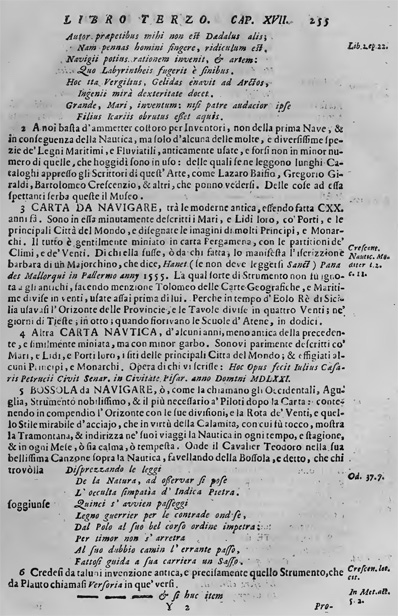 LIBRO TERZO. CAP. XVII. 255
Autor præpetibus mihi non est Dædalus alis;
Nam pennas homini fingere, ridiculum est,
Lib. 2. ep. 22.
Navigii potius rationem invenit, & artem:
Quo Labyrintheis fugerit è finibus.
Hoc ita Vergilius, Gelidas enavit ad Arctos,
Ingenii mirà dexteritate docet.
Grande, Mari, inventum; nisi patre audacior ipse
Filius Icariis obrutus esset aquis.
2 A noi basta d'ammetter costoro per Inventori, non della prima Nave, &
in conseguenza della Nautica, ma solo d'alcuna delle molte, e diversissime spe-
zie de' Legni Maritimi, e Fluviatili, anticamente usate, e forsi non in minor nu-
mero di quelle, che hoggidì sono in uso: delle quali se ne leggono lunghi Ca-
taloghi appresso gli Scrittori di quest'Arte, come Lazaro Baifio, Gregorio Gi-
raldi, Bartolomeo Crescenzio, & altri, che ponno vedersi. Delle cose ad essa
spettanti serba quelle il Museo.
3 CARTA DA NAVIGARE, trà le moderne antica, essendo fatta CXX.
anni fà. Sono in essa minutamente descritti i Mari, e Lidi loro, co' Porti, e le
principali Città del Mondo, e disegnate le imagini di molti Principi, e Monar-
chi. Il tutto è gentilmente miniato in carta Pergamena, con le partitioni de'
Climi, e de' Venti. Di chi essa fusse, ò da chi fatta, lo manifesta l'iscrizzione
Crescent. Nautic. Me-
barbara di un Majorchino, che dice, Hanet (se non deve leggersi Sanet) Pana
diter l. 2.
des Mallorqui in Pallermo anny 1555. La qual sorte di Strumento non fù igno-
c. 12.
ta à gli antichi, facendo menzione Tolomeo delle Carte Geografiche, e Mariti-
me divise in venti, usate assai prima di lui. Perche in tempo d'Eolo Rè di Sici-
lia usavasi l'Orizonte delle Provincie, e le Tavole divise in quattro Venti; ne'
giorni di Tesse; in otto; quando fiorivano le Scuole d'Atene, in dodici.
4 Altra CARTA NAUTICA, d'alcuni anni, meno antica della preceden-
te, e similmente miniata, ma con minor garbo. Sonovi parimente descritti co'
Mari, e Lidi, e Porti loro, i siti delle principali Città del Mondo; & effigiati al-
cuni Principi, e Monarchi. Opera di chi vi scrisse: Hoc Opus fecit Iulius Cæsa-
ris Petrucii Civit Senar. in Civitate Pisar. anno Domini MDLXXI.
5 BOSSOLA da NAVIGARE, ò, come la chiamano gli Occidentali, Agu-
glia, Strumento nobilissimo, & il più necessario a' Piloti dopo la Carta: conte-
nendo in compendio l'Orizonte con le sue divisioni, e la Rota de' Venti, e quel-
lo Stile mirabile d'acciajo, che in virtù della Calamita, con cui fù tocco, mostra
la Tramontana, & indirizza ne' suoi viaggi la Nautica in ogni tempo, e stagione,
& in ogni Mele, ò sia calmo, ò tempesta. Onde il Cavalier Teodoro nella sua
bellissima Canzone sopra la Nautica, favellando della Bossola, e detto, che chi
trovolla Disprezzando le leggi
Od. 37. 7.
De la Natura, ad osservar si pose
L' occulta simpatia d' Indica Pietra.
soggiunse Quinci s' avvien passeggi
Legno guerrier per le contrade ondose,
Dal Polo al suo bel corso ordine impetra;
Per timor non s' arretra
Al suo dubbio camin l' errante passo,
Fattosi guida a sua carriera un Sasso.
6 Credesi da taluni invenzione antica, e precisamente quello Strumento, che
Crescen. loc. cit.
da Plauto chiamasi Versoria in que' versi.
& si huc item
In Met. act. 5. 2.
Y 2 Pro-